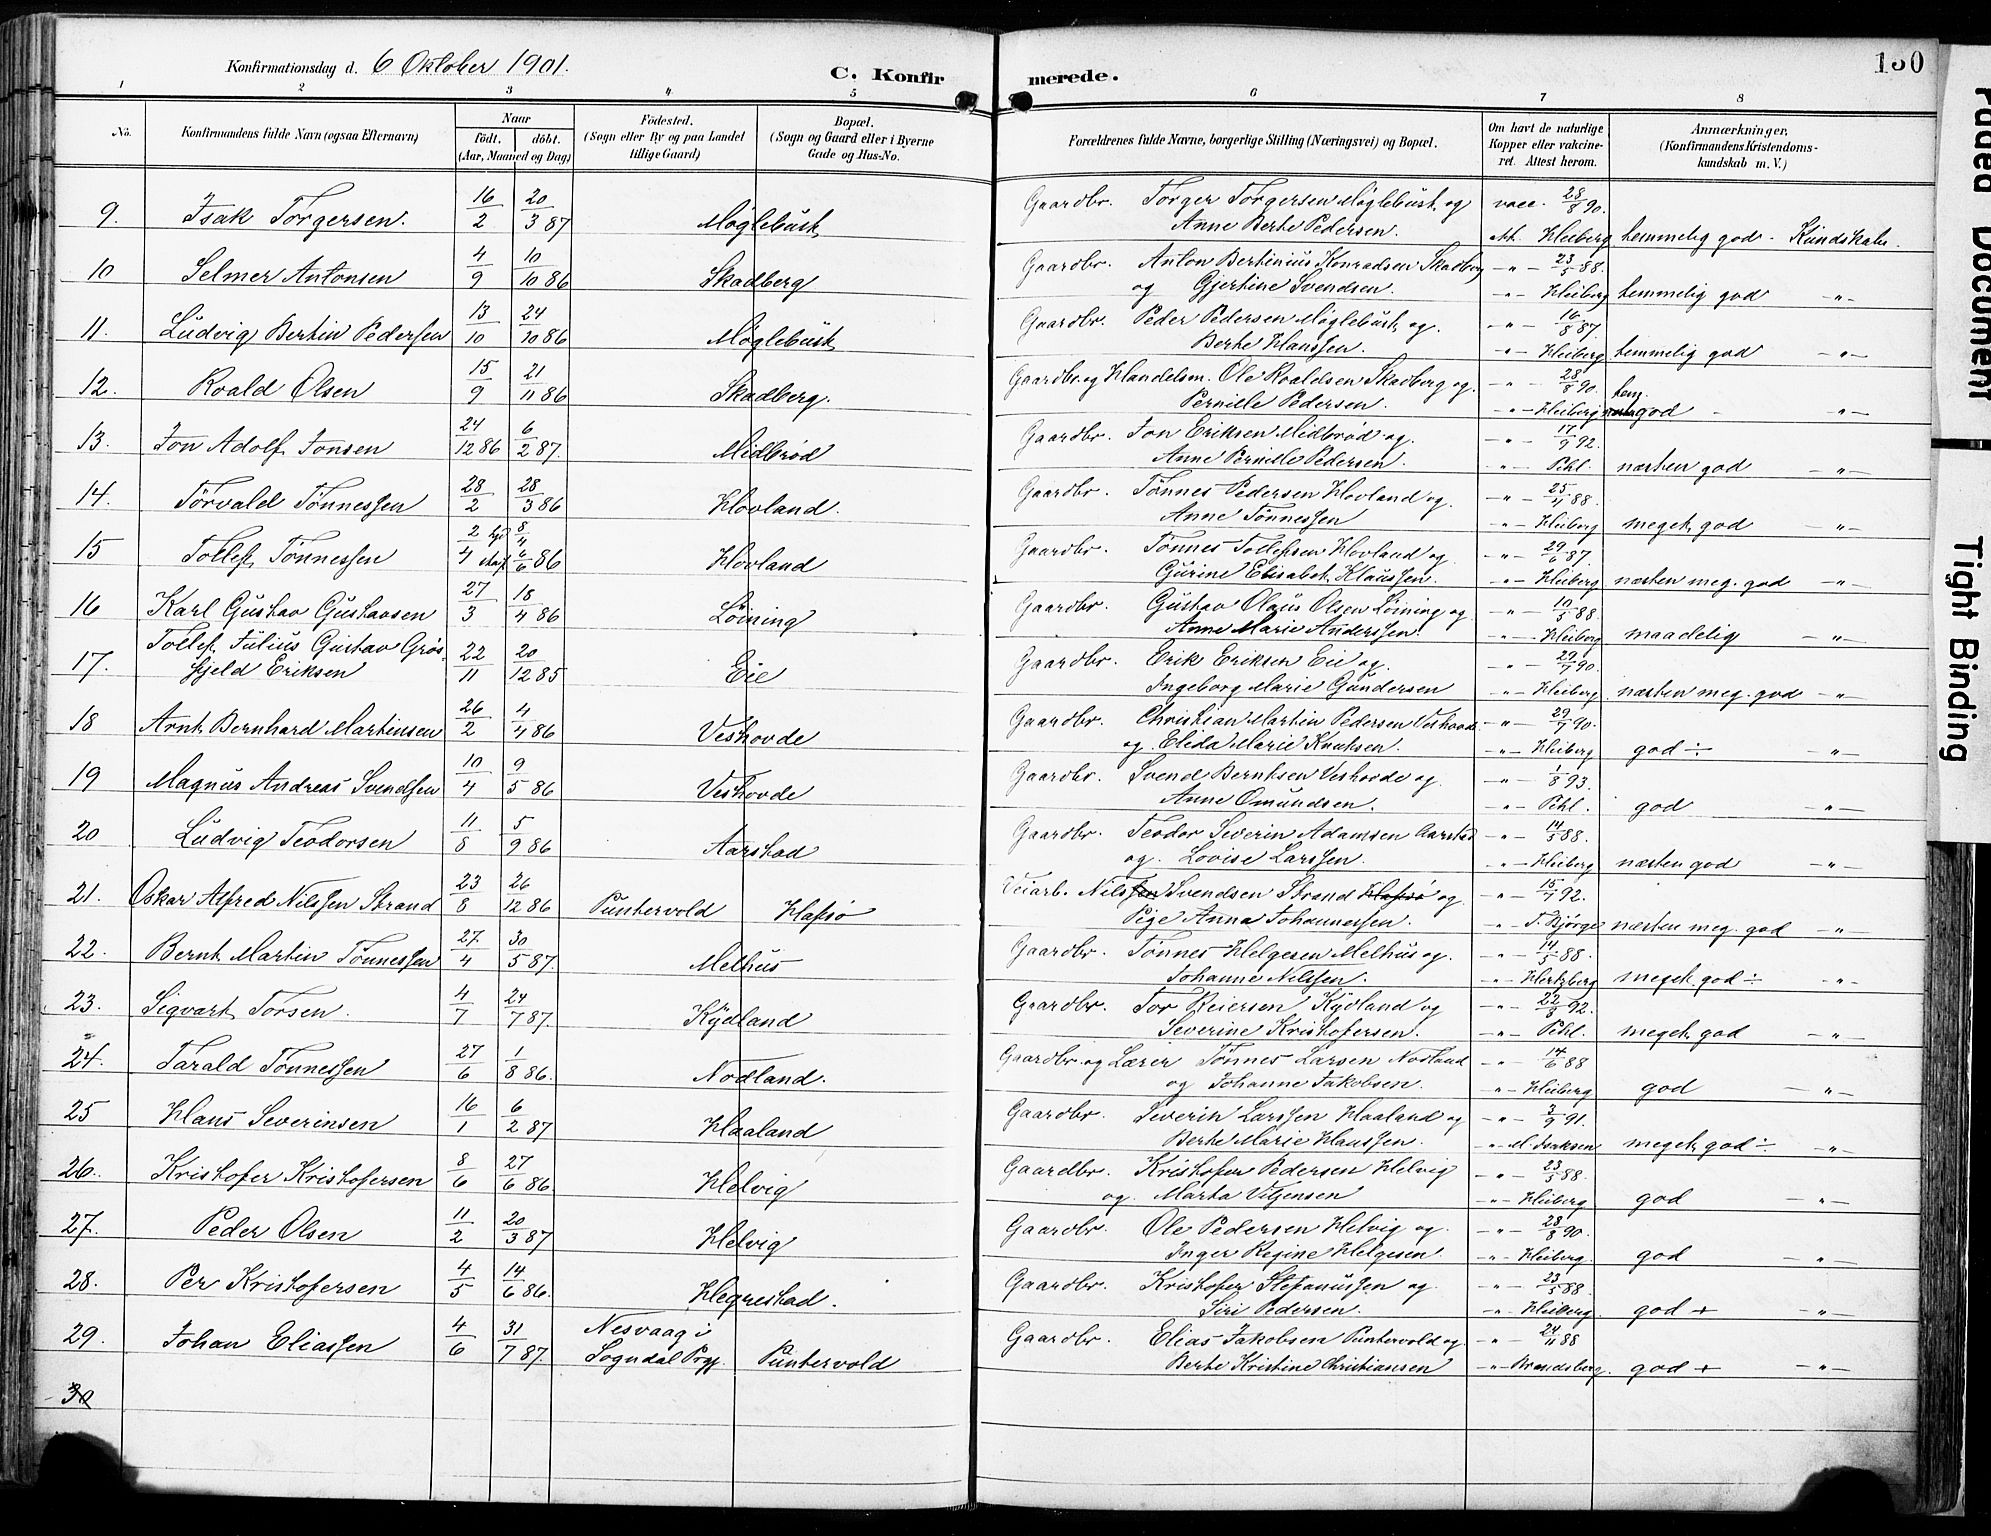 Konfirmationsdag d. 6 Oktober 1901.
C. Konfirmerede.
130
1 2 3 4 5 6 7 8
No. Konfirmandens fulde Navn (ogsaa Efternavn) Naar født, døbt. (Aar, Maaned og Dag) Fødested. (Sogn eller By og paa Landet tillige Gaard) Bopæl. (Sogn og Gaard eller i Byerne Gade og Hus-No. Forældrenes fulde Navne, borgerlige Stilling (Næringsvei) og Bopæl. Om havt de naturlige Kopper eller vakcineret. Attest herom. Anmærkninger, (Konfirmandens Kristendomskundskab m. V.)
9. Isak Torgersen. 16/2 20/3 87 Møglebust Gaardbr. Torger Torgersen Møglebust og vacc. 28/8 90.
Anne Berte Pedersen. Att. Heiberg temmelig god - Kundskabs.
10 Selmer Antonsen 4/9 10/10 86 Skadberg Gaardbr. Anton Bertinius Konradsen Skadberg -"- 23/5 88.
og Gjertine Svendsen. -"- Heiberg temmelig god -"-
11. Ludvig Bertin Pedersen 13/10 24/10 86 Møglebust Gaardbr. Peder Pedersen Møglebust og -"- 16/8 87.
Berte Hanssen. -"- Heiberg temmelig god -"-
12. Roald Olsen 15/9 21/11 86 Skadberg. Gaardbr. og Handelsm. Ole Roaldsen Skadberg og -"- 28/8 90.
Pernille Pedersen. -"- Heiberg tem. god -"-
13. Jon Adolf Jonsen 24/12 86 6/2 87. Midbrød Gaardbr. Jon Eriksen Midbrød og -"- 17/9 92.
Anne Pernille Pedersen. -"- Pihl. næsten god -"-
14. Torvald Tønnessen 28/2 28/3 86 Hovland. Gaardbr. Tønnes Pedersen Hovland og -"- 25/4 88.
Anne Tønnessen -"- Heiberg meget god -"-
15 Tollef Tønnessen 2/4 8/4 6/6 86 Hovland Gaardbr. Tønnes Tollefsen Hovland og -"- 29/6 87.
Gurine Elisabet Klaussen. -"- Heiberg næsten meg. god -"-
16 Karl Gustav Gustavsen 27/3 18/4 86 Løining Gaardbr. Gustav Olaus Olsen Løining og -"- 10/5 88.
Anne Marie Anderssen. -"- Heiberg maadelig -"-
17. Tollef Julius Gustav Grøs-
fjeld Eriksen 22/11 20/12 85 Eie Gaardbr. Erik Eriksen Eie og -"- 29/7 90.
Ingeborg Marie Gundersen -"- Heiberg næsten meg. god -"-
18 Arnt Bernhard Martinsen 26/2 4/4 86 Veshovde Gaardbr. Christian Martin Pedersen Veshovde -"- 29/7 90.
og Elida Marie Knutsen. -"- Heiberg god ÷ -"-
19 Magnus Andreas Svendsen 10/4 9/5 86 Veshovde Gaardbr. Svend Berntsen Veshovde og -"- 1/8 93.
Anne Omundsen. -"- Pihl. god -"-
20 Ludvig Teodorsen 11/8 5/9 86 Aarstad Gaardbr. Teodor Severin Adamsen Aarstad -"- 14/5 88.
og Lovise Larssen. -"- Heiberg næsten god -"-
21. Oskar Alfred Nilssen Strand 23/8 26/12 86 Puntervold Hafsø Veiarb. Nils Svendsen Strand Hafsø og -"- 15/7 92.
Pige Anna Johannessen. -"- T. Bjørge næsten meg. god -"-
22. Bernt Martin Tønnessen 27/4 30/5 87. Melhus Gaardbr. Tønnes Helgesen Melhus og -"- 14/5 88.
Johanne Nilssen. -"- Hertzberg meget god ÷ -"-
23. Sigvart Torsen. 4/7 24/7 87. Kydland Gaardbr. Tor Reiersen Kydland og -"- 22/3 92.
Severine Kristofersen. -"- Pihl. meget god -"-
24. Tarald Tønnessen 27/6 1/8 86. Nodland. Gaardbr. og Lærer Tønnes Larsen Nodland -"- 14/6 88
og Johanne Jakobsen. -"- Heiberg god -"-
25 Hans Severinsen 16/1 6/2 87 Haaland Gaardbr. Severin Larssen Haaland og -"- 3/9 91.
Berte Marie Hanssen. -"- M. Isaksen meget god ÷ -"-
26. Kristofer Kristofersen 8/6 27/6 86. Helvig Gaardbr. Kristofer Pedersen Helvig -"- 23/5 88.
og Marta Vitjensen -"- Heiberg god -"-
27. Peder Olsen 11/2 20/3 87 Helvig Gaardbr. Ole Pedersen Helvig og -"- 28/8 90.
Inger Regine Helgesen -"- Heiberg. god -"-
28. Per Kristofersen 4/5 14/6 86. Hegrestad. Gaardbr. Kristofer Stefanussen og -"- 23/5 88.
Siri Pedersen. -"- Heiberg god + -"-
29. Johan Eliassen 4/6 31/7 87. Nesvaag i Sogndal Prgj. Puntervold Gaardbr. Elias Jakobsen Puntervold og -"- 24/11 88
Berte Kristine Christiansen -"- god + -"-
30
Faded Document
Tight Binding